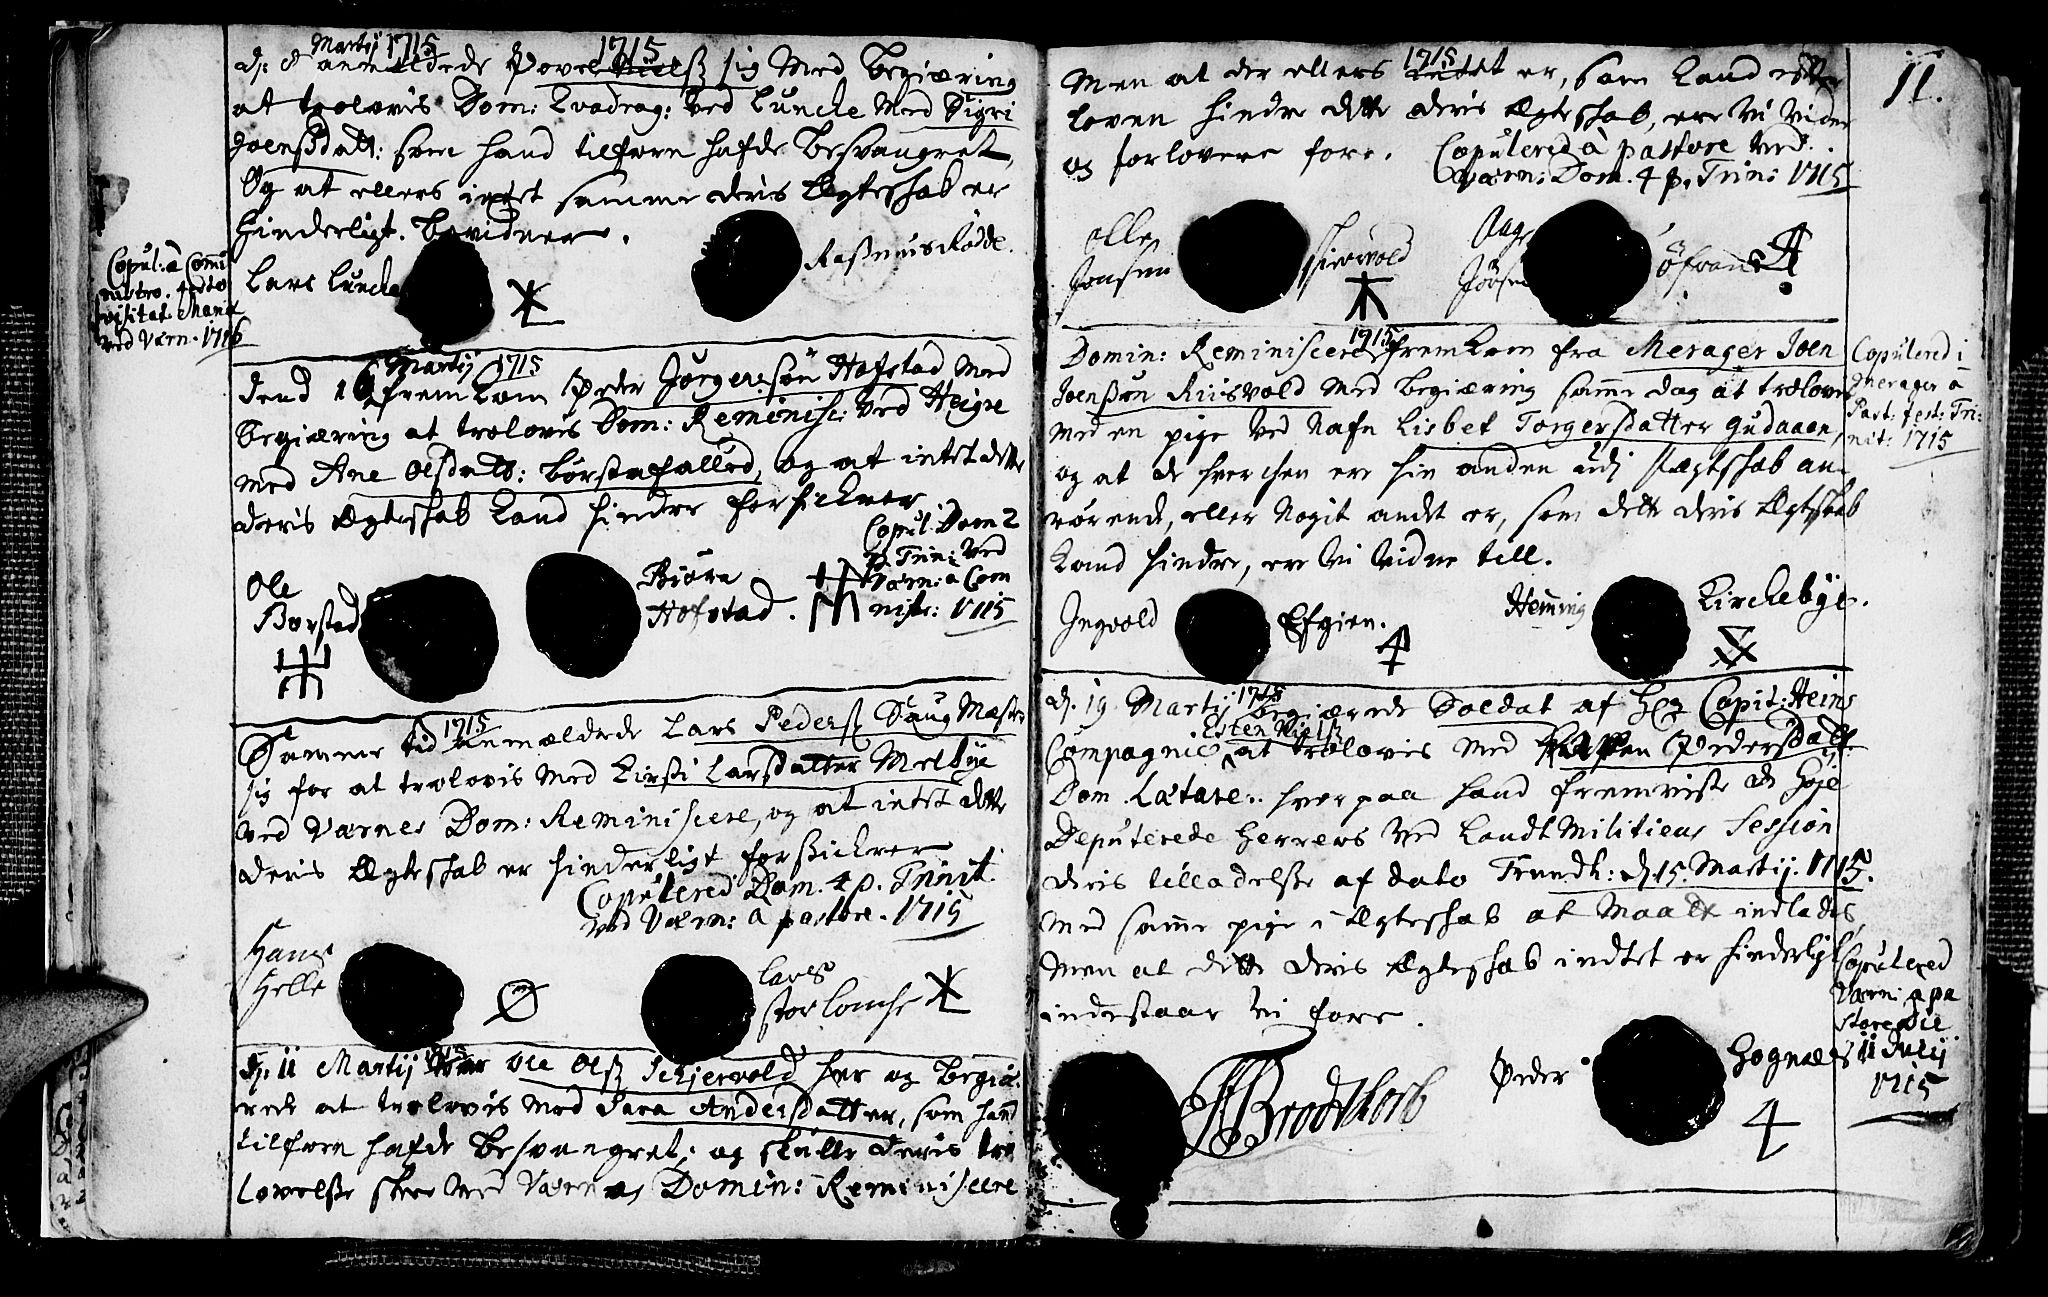 Martij 1715 1715
d: 8 anmeldede Povel Nielsß sig Med begiæring
at trolovis Dom: Qvadrag: ved Luncke Med Sigri
Joensdatt: som hand tilforn hafde besvangret,
Og at ellers intet samme deris Ægteskab er
hinderligt. bevidner.
Copul: à Comi
nistro. festo
visitat: Mariæ
ved Værn. 1716
Lars Luncke
Rasmus Rødde.
Martij 1715
dend 10 fremkom Peder Jørgensøn Hofstad Med
begiæring at trolovis Dom: Reminisc: ved Heigre
med Ane Olsdatt: Børstafalled, og at intet dette
deris Ægteskab kand hindre forsickrer
Copul: Dom 2
p. Trin: ved
Værn: a Com
nistr: 1715
Ole
Børstad
Biørn
Hofstad.
1715
Samme tid anmældede Lars Pedersß Saug Mæstr
sig for at trolovis med Kirsti Larsdatter Melbye
ved Værnes Dom: Reminiscere, og at intet dette
deris Ægteskab er hinderligt forsickrer
Copulered Dom. 4 p. Trinit.
ved Værn: a pastore. 1715
Hans
Helle
Lars
storlomche
1715
d: 11 Martij var Ole Olsß Schjervold her og begiæ-
rede at trolovis med Sara Andersdatter, som hand
tilforn hafde besvangret; og skulle deris tro
lovelse skee ved Værnes Domin: Reminiscere
11.
1715
Men at der ellers intet er, som kand efter
loven hindre dette deris Ægteskab, ere vi vidne
og forlovere fore.
Copulered à pastore ved
Værn: Dom. 4 p. Trin: 1715
Olle
Jonsen
schiervold
Aage
Jørsen
Øfran
1715
Domin: Reminiscere fremkom fra Merager Joen
Joensøn Riisvold med begiæring samme dag at trolovis
med en pige ved Nafn Lisbet Torgersdatter Gudaaen,
og at de hverchen ere hin anden udj slægtskab an-
rørende, eller Nogit andet er, som dette deris Ægteskab
kand hindre, ere vi vidne till.
Copulered i
Merager a
Past: fest: Tri-
nit: 1715
Ingvold
Efgien.
Heming
Kirckebye.
1715
d. 19 Martij begiærede Soldat af Hr Capit: Heins
Esten Nielsß
Compagnie at trolovis med Karen Pedersdatt
Dom. Lætare. hvorpaa hand fremviste de høje
Deputerede Herrers ved Landt Militiens Session
deris tilladelse af dato Trundh: d. 15. Martij. 1715.
med samme pige i Ægteskab at Maatte indlades,
Men at dette deris Ægteskab indtet er hinderligt
indestaar vi fore.
Copulered
Værn: a pa
store die
11 Julij
1715
Brodtkorb
Peder
Hognæs